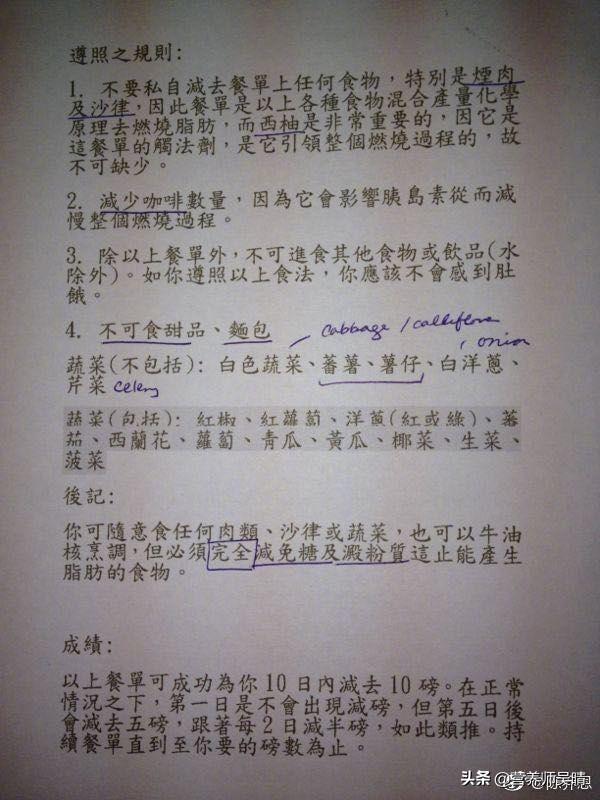 遵照之規則:
1. 不要私自減去餐單上任何食物，特別是煙肉
及沙律，因此餐單是以上各種食物混合產量化學
原理去燃燒脂肪，而西柚是非常重要的，因它是
這餐單的觸法劑，是它引領整個燃燒過程的，故
不可缺少。
2. 減少咖啡數量，因為它會影響胰島素從而減
慢整個燃燒過程。
3. 除以上餐單外，不可進食其他食物或飲品(水
除外)。如你遵照以上食法，你應該不會感到肚
餓。
4. 不可食甜品、麵包
cabbage /
, onion
蔬菜(不包括): 白色蔬菜、蕃薯、薯仔、白洋蔥、
芹菜 celery
蔬菜(包括): 紅椒、紅蘿蔔、洋蔥(紅或綠)、蕃
茄、西蘭花、蘿蔔、青瓜、黃瓜、椰菜、生菜、
菠菜
後記:
你可隨意食任何肉類、沙律或蔬菜，也可以牛油
核烹調，但必須完全減免糖及澱粉質這止能產生
脂肪的食物。
成績:
以上餐單可成功為你 10 日內減去 10 磅。在正常
情況之下，第一日是不會出現減磅，但第五日後
會減去五磅，跟著每 2 日減半磅，如此類推。持
續餐單直到至你要的磅數為止。
头条 @营养师吴晴